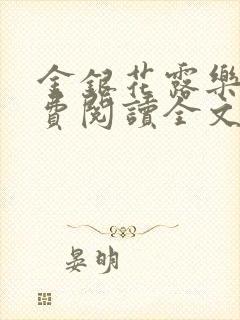 金銀花露樂
費閱讀全文
晏明